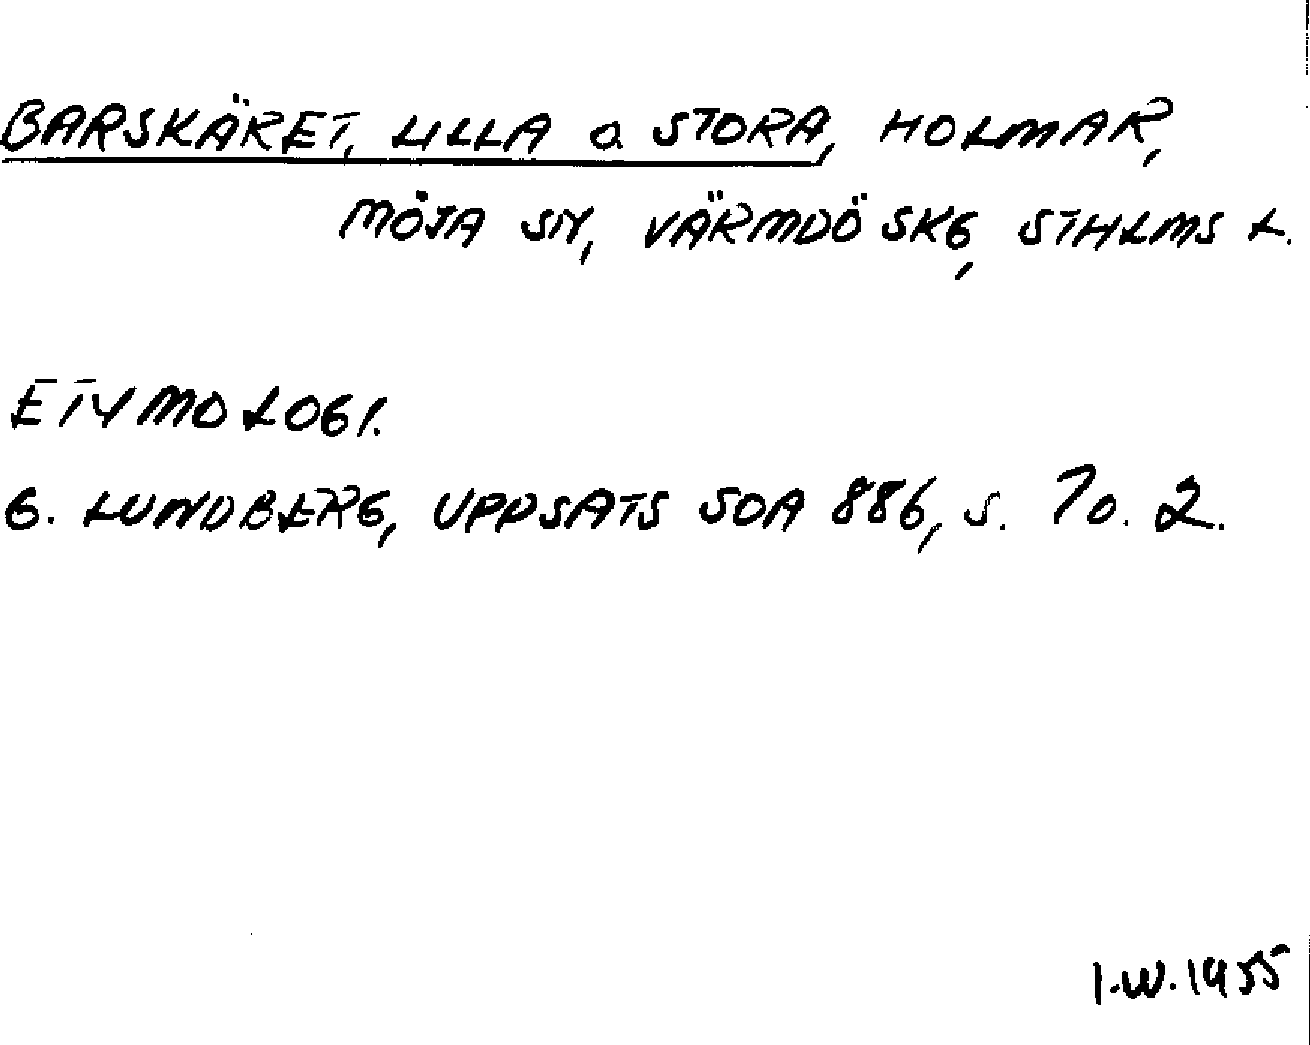 BARSKÄRET, LILLA o STORA, HOLMAR,
MÖJA SN, VÄRMDÖ SKG, STHLMS L.
ETYMOLOGI.
G. LUNDBERG, UPPSATS SOA 886, s. 70. 2.
I.W. 1955